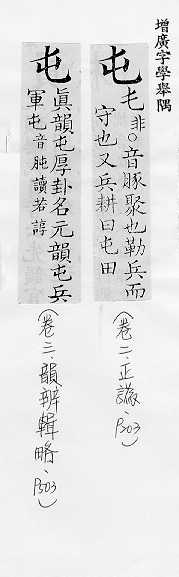 增廣字學舉隅
屯
乇非。音豚聚也勒兵而
守也又兵耕曰屯田
(卷二、正譌、P203)
屯
真韻屯厚卦名元韻屯兵
軍屯音肫讀若諄
(卷三、韻辨輯略、P303)